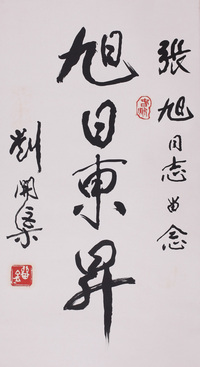 張旭同志留念
旭日東昇
劉開渠